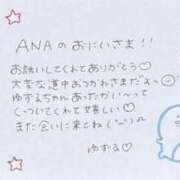 ANAのおにいさま!!
お誘いしてくれてありがとう♡
大変な道中おつかれさまだよ〜
ゆずるちゃんあったかい〜って
くっついてくれて嬉しい♡
また会いに来てね(¨̮)⌒♡
ゆずる♡